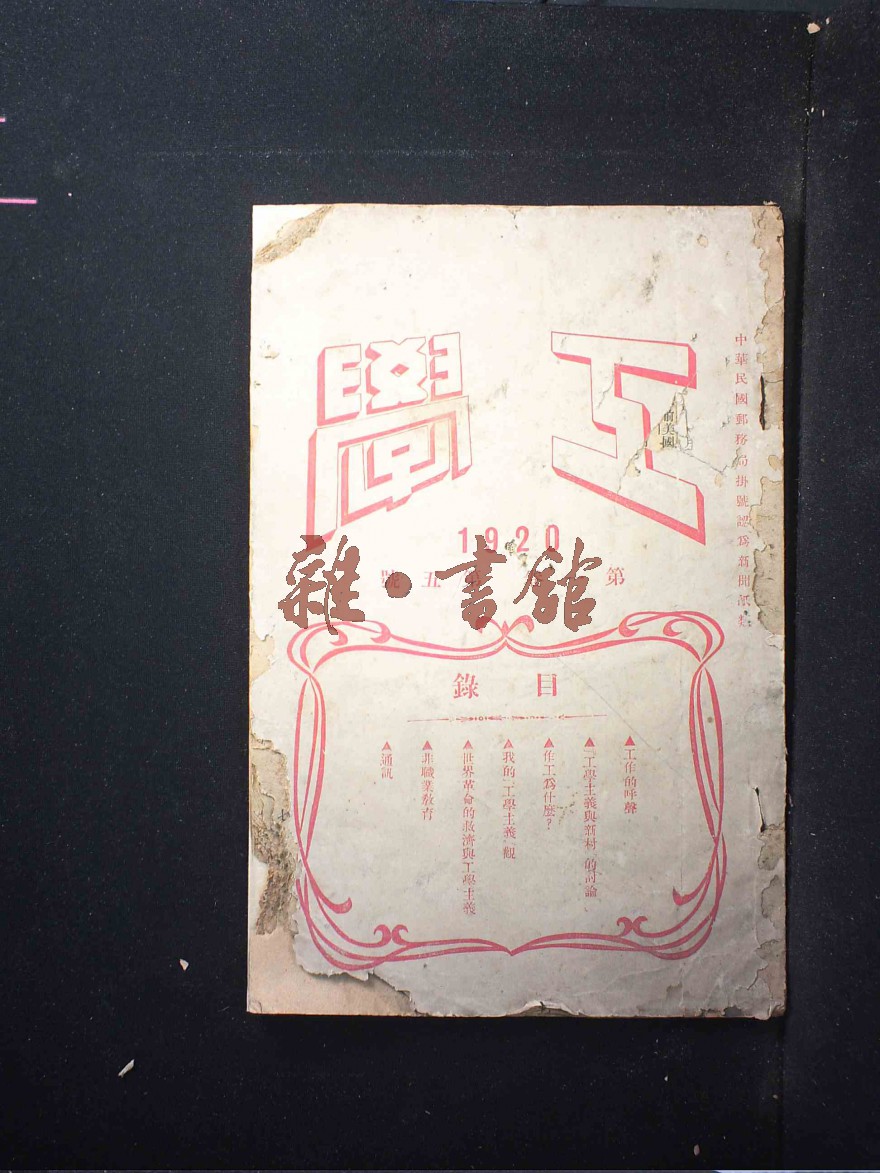 中華民國郵務局掛號認爲新聞紙類
工學
1920
第
五號
雜·書館
目錄
▲工作的呼聲
▲「工學主義與新村」的討論
▲作工爲什麼？
▲我的「工學主義」觀
▲世界革命的救濟與工學主義
▲非職業教育
▲通訊